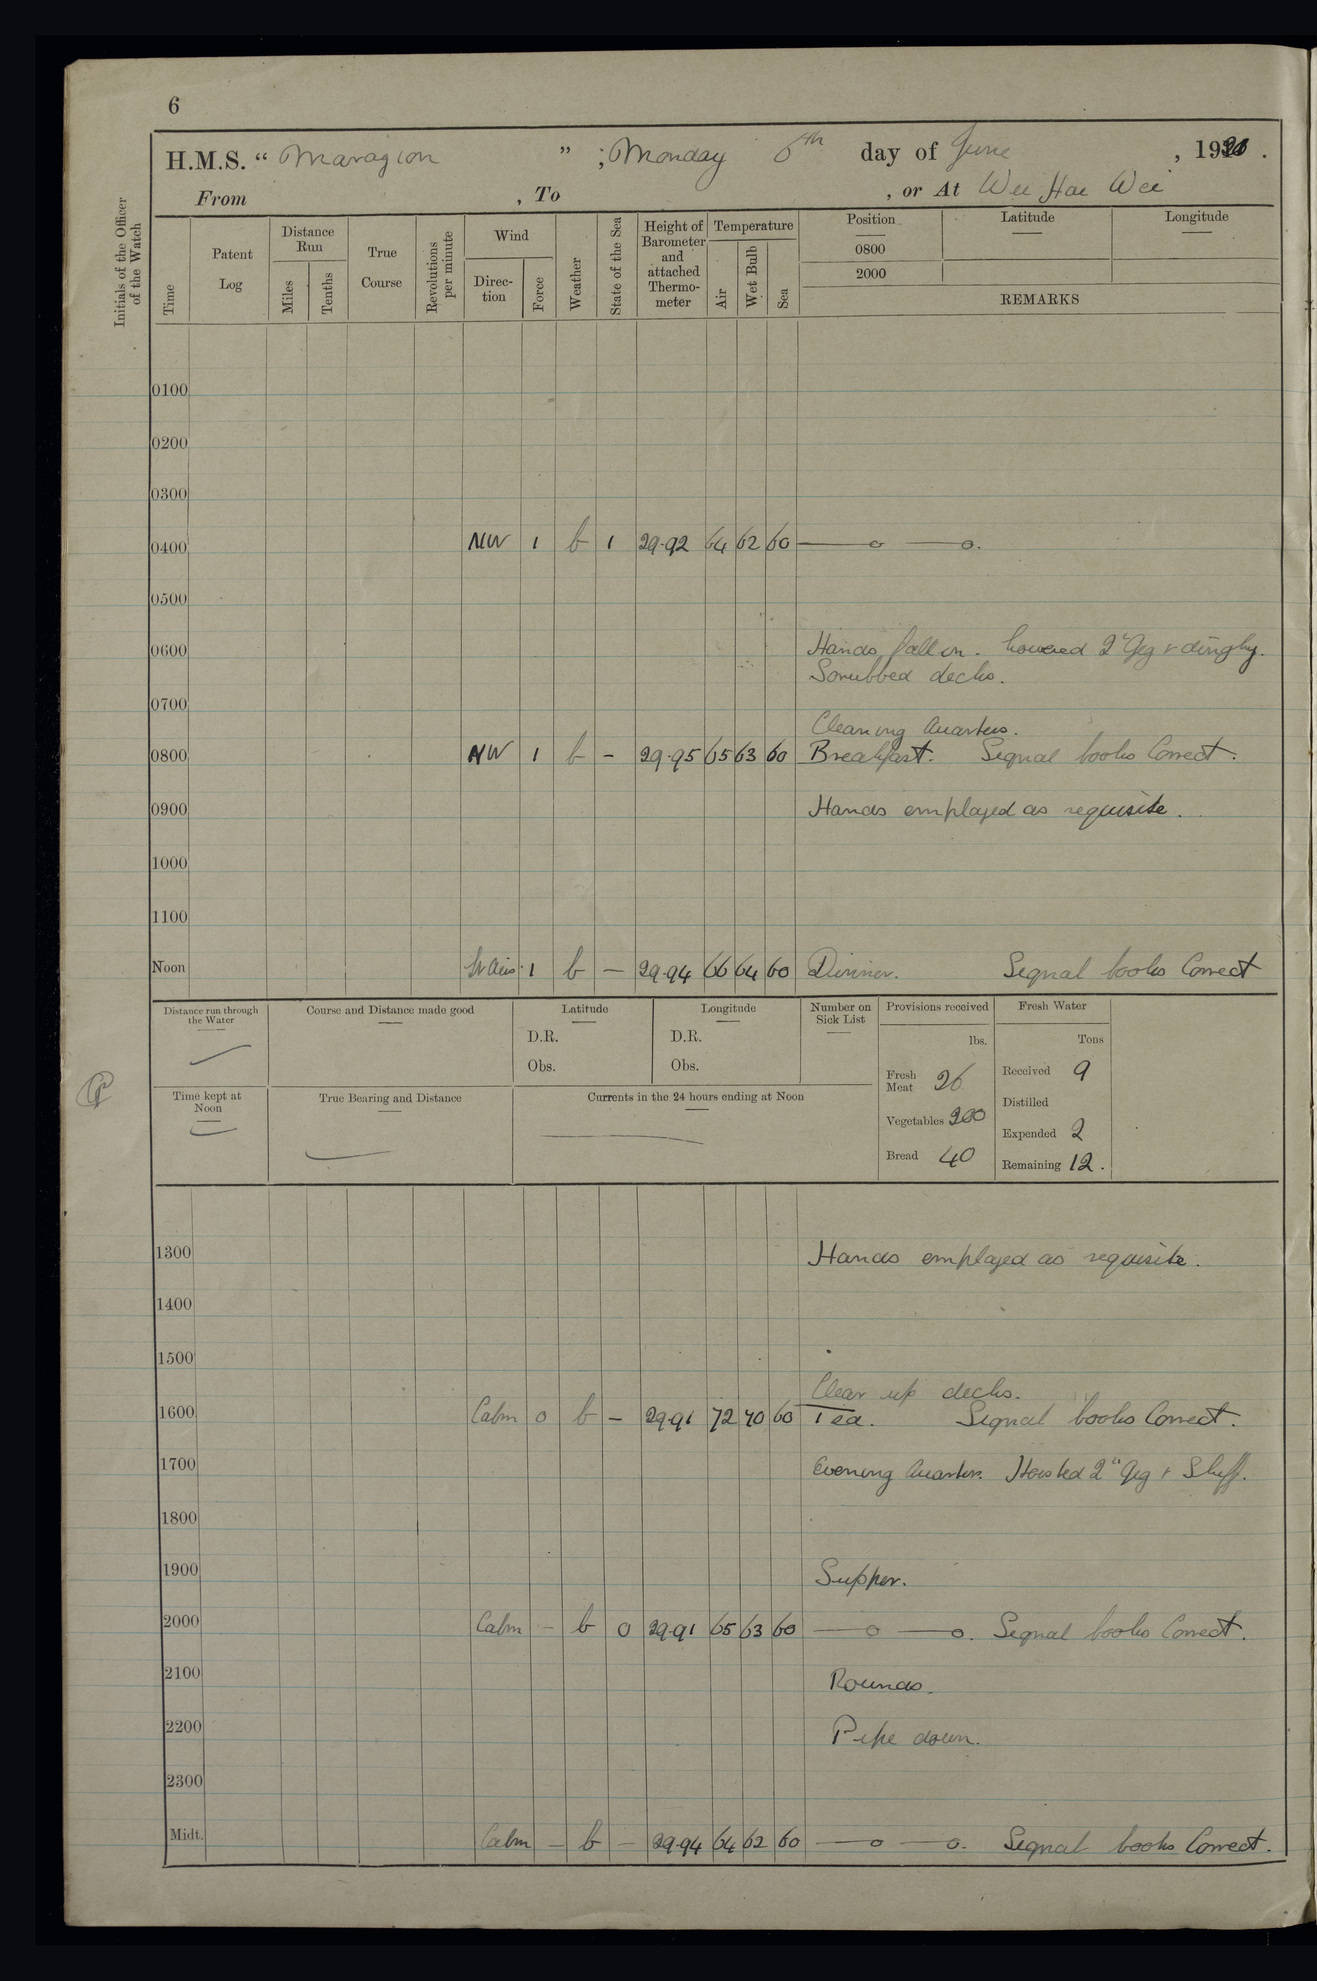 6
H.M.S. “ Maragion ” ; Monday 6th day of June , 19 .
From , To , or At Wei Hai Wei
Initials of the Officer of the Watch
Time
Patent Log
Distance Run
Miles
Tenths
True Course
Revolutions per minute
Wind
Direction
Force
Weather
State of the Sea
Height of Barometer and attached Thermo-meter
Temperature
Air
Wet Bulb
Sea
Position
Latitude
Longitude
0800
2000
REMARKS
0100
0200
0300
0400 NW 1 b 1 29.92 64 62 60 —o —o.
0500
0600 Hands fall in. Lowered 2nd Gig & dinghy.
Scrubbed decks.
0700
Cleaning Quarters.
0800 NW 1 b - 29.95 65 63 60 Breakfast. Signal books Correct.
0900 Hands employed as requisite.
1000
1100
Noon Lt Airs 1 b - 29.94 66 64 60 Dinner. Signal books Correct
Distance run through the Water
Course and Distance made good
Latitude
D.R.
Obs.
Longitude
D.R.
Obs.
Number on Sick List
Provisions received
lbs.
Fresh Meat 26
Vegetables 200
Bread 40
Fresh Water
Tons
Received 9
Distilled
Expended 2
Remaining 12.
Time kept at Noon
True Bearing and Distance
Currents in the 24 hours ending at Noon
1300 Hands employed as requisite.
1400
1500
Clear up decks.
1600 Calm 0 b - 29.91 72 70 60 Tea. Signal books Correct.
1700 Evening Quarters. Hoisted 2nd Gig & Skiff.
1800
1900 Supper.
2000 Calm - b 0 29.91 65 63 60 —o —o. Signal books Correct.
2100 Rounds.
2200 Pipe down.
2300
Midt. Calm - b - 29.94 64 62 60 —o —o. Signal books Correct.